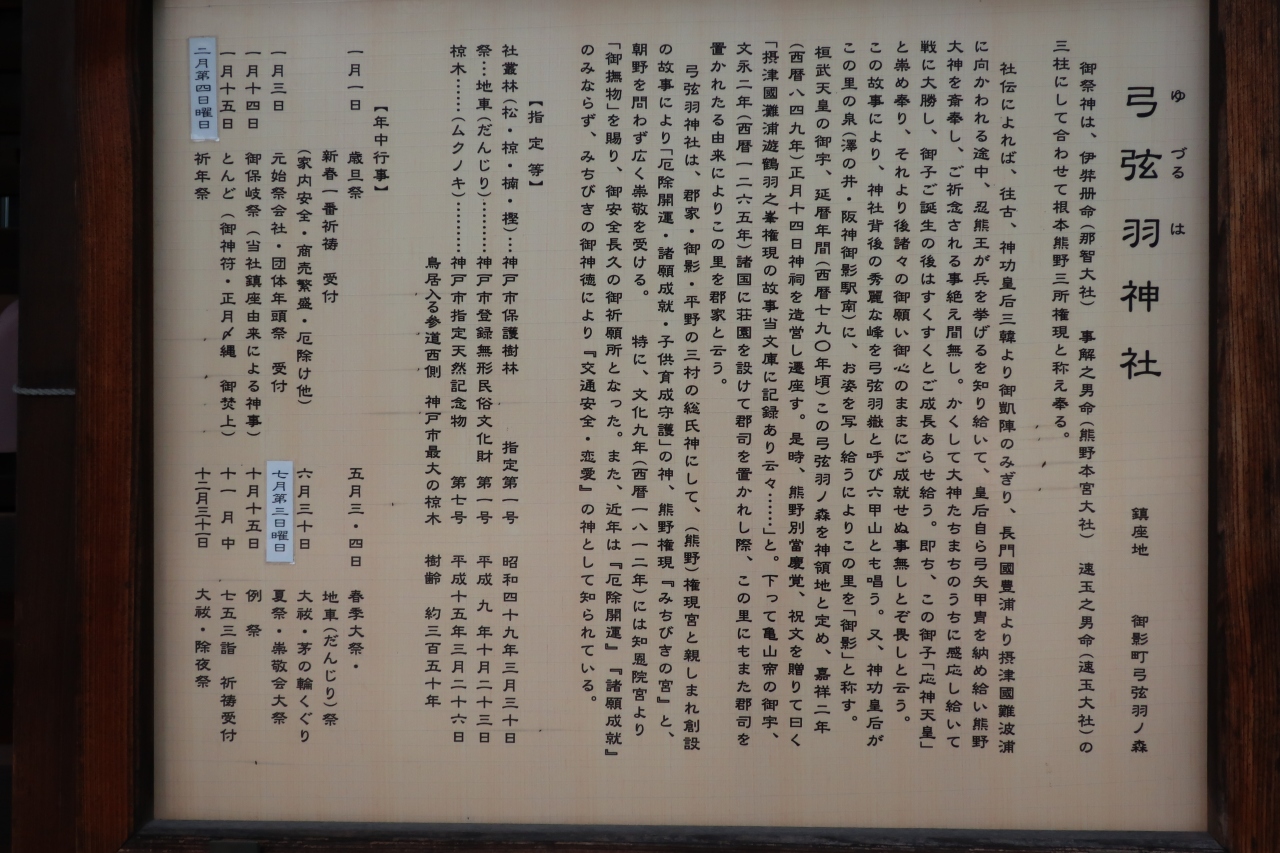 ゆづるは
弓弦羽神社
鎮座地　御影町弓弦羽ノ森
御祭神は、伊弉册命(那智大社)　事解之男命(熊野本宮大社)　速玉之男命(速玉大社)の
三柱にして合わせて根本熊野三所権現と称え奉る。
社伝によれば、往古、神功皇后三韓より御凱陣のみぎり、長門國豊浦より摂津國難波浦
に向かわれる途中、忍熊王が兵を挙げるを知り給いて、皇后自ら弓矢甲冑を納め給い熊野
大神を斎奉し、ご祈念される事絶え間無し。かくして大神たちまちのうちに感応し給いて
戦に大勝し、御子ご誕生の後はすくすくとご成長あらせ給う。即ち、この御子「応神天皇」
と崇め奉り、それより後諸々の御願い御心のままにご成就せぬ事無しとぞ畏しと云う。
この故事により、神社背後の秀麗な峰を弓弦羽嶽と呼び六甲山とも唱う。又、神功皇后が
この里の泉(澤の井・阪神御影駅南)に、お姿を写し給うによりこの里を「御影」と称す。
桓武天皇の御宇、延暦年間(西暦七九〇年頃)この弓弦羽ノ森を神領地と定め、嘉祥二年
(西暦八四九年)正月十四日神祠を造営し遷座す。是時、熊野別當慶覚、祝文を贈りて曰く
「摂津國灘浦遊鶴羽之峯権現の故事当文庫に記録あり云々……」と。下って亀山帝の御宇、
文永二年(西暦一二六五年)諸国に荘園を設けて郡司を置かれし際、この里にもまた郡司を
置かれたる由来によりこの里を郡家と云う。
弓弦羽神社は、郡家・御影・平野の三村の総氏神にして、(熊野)権現宮と親しまれ創設
の故事により「厄除開運・諸願成就・子供育成守護」の神、熊野権現『みちびきの宮』と、
朝野を問わず広く崇敬を受ける。　特に、文化九年(西暦一八一二年)には知恩院宮より
「御撫物」を賜り、御安全長久の御祈願所となった。また、近年は『厄除開運』『諸願成就』
のみならず、みちびきの御神徳により『交通安全・恋愛』の神として知られている。
【指定等】
社叢林(松・椋・楠・樫)…神戸市保護樹林　指定第一号　昭和四十九年三月三十日
祭…地車(だんじり)…………神戸市登録無形民俗文化財　第一号　平成九年十月二十三日
椋木……(ムクノキ)…………神戸市指定天然記念物　第七号　平成十五年三月二十六日
鳥居入る参道西側　神戸市最大の椋木　樹齢　約三百五十年
【年中行事】
一月一日　歳旦祭
新春一番祈祷　受付
(家内安全・商売繁盛・厄除け他)
一月三日　元始祭会社・団体年頭祭　受付
一月十四日　御保岐祭（当社鎮座由来による神事）
一月十五日　とんど（御神符・正月〆縄　御焚上）
二月第四日曜日　祈年祭
五月三・四日　春季大祭・
地車(だんじり)祭
六月三十日　大祓・茅の輪くぐり
七月第三日曜日　夏祭・崇敬会大祭
十月十五日　例　祭
十一月中　七五三詣　祈祷受付
十二月三十一日　大祓・除夜祭